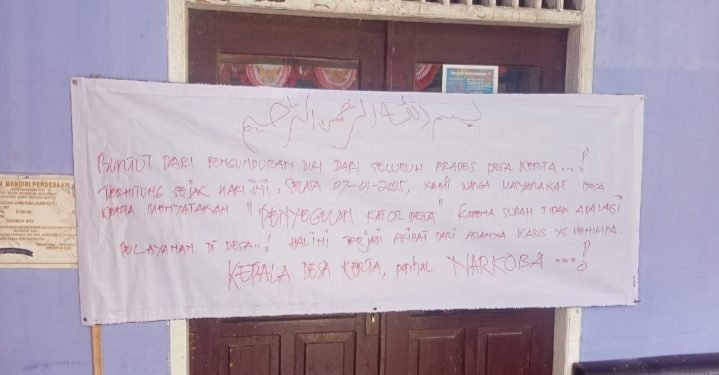 بسم الله الرحمن الرحيم
BUNTUT DARI PENGUNDURAN DIRI DARI SELURUH PRADES DESA KERTA...!
TERHITUNG SEJAK HARI INI. SELASA 07-01-2025, KAMI WARGA MASYARAKAT DESA
KERTA MENYATAKAN "PENYEGELAN KATOR DESA" KARENA SUDAH TIDAK ADA LAGI
PELAYANAN DI DESA..! HAL INI TERJADI AKIBAT DARI ADANYA KASUS YG MENIMPA
KEPALA DESA KERTA, perihal NARKOBA...!
MANDIRI PERDESAAN